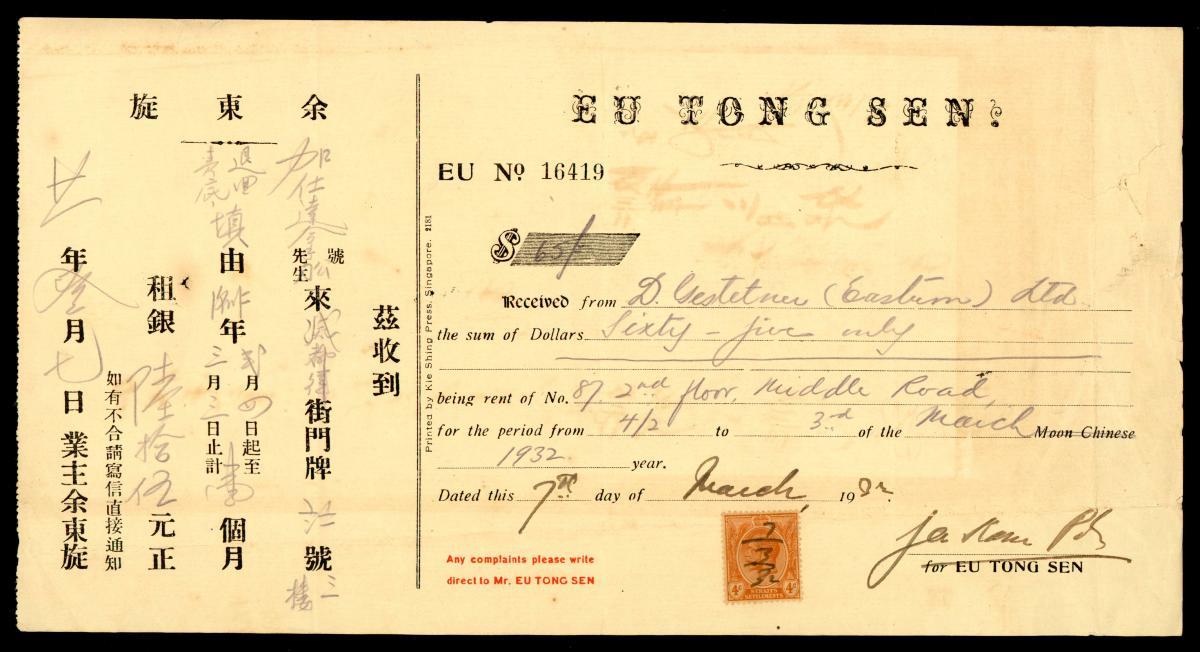 余東旋
茲收到
加仕達
號
先生
來 街門牌 號
三樓
退回
填由 年 月四日起至
三月三日止計 個月
租銀陸拾伍元正
如有不合請寫信直接通知
廿 年叁月七日 業主余東旋
EU TONG SEN.
EU No 16419
$ 65/
Received from D. Gestetner (Eastern) Ltd
the sum of Dollars Sixty-five only
being rent of No. 87 2nd floor, Middle Road,
for the period from 4/2 to 3rd of the March Moon Chinese
1932 year.
Dated this 7th day of March, 1932.
Any complaints please write
direct to Mr. EU TONG SEN
for EU TONG SEN
7
3
32
4c STRAITS SETTLEMENTS 4c
Printed by Kie Shing Press, Singapore. 2181